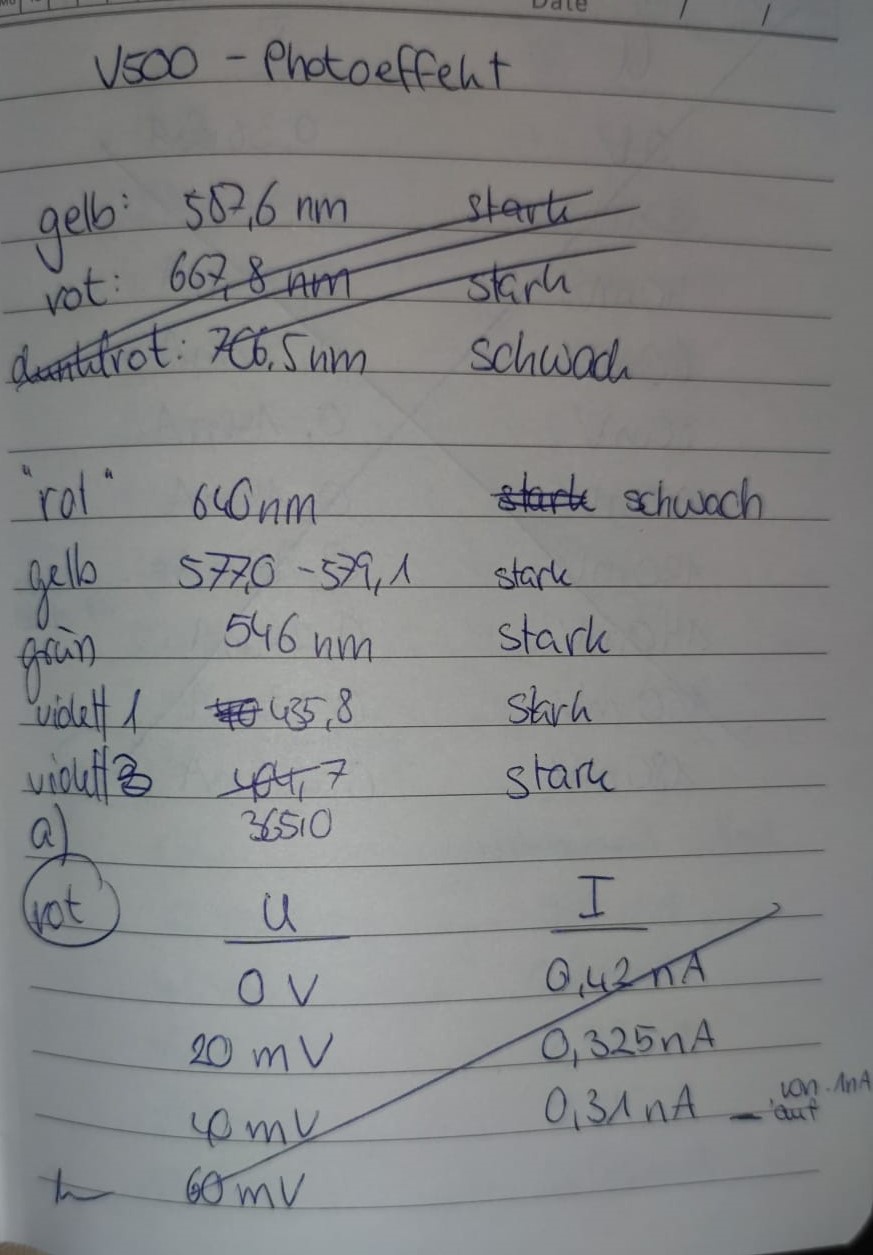 Date / /
V500 - Photoeffekt
gelb: 587,6 nm stark
rot: 667,8 nm stark
dunkelrot: 706,5 nm schwach
"rot" 640 nm stark schwach
gelb 577,0 - 579,1 stark
grün 546 nm stark
violett 1 435,8 stark
violett 404,7 stark
a) 365,0
rot U I
0 V 0,42 nA
20 mV 0,325 nA
40 mV 0,31 nA von 1nA
auf
60 mV